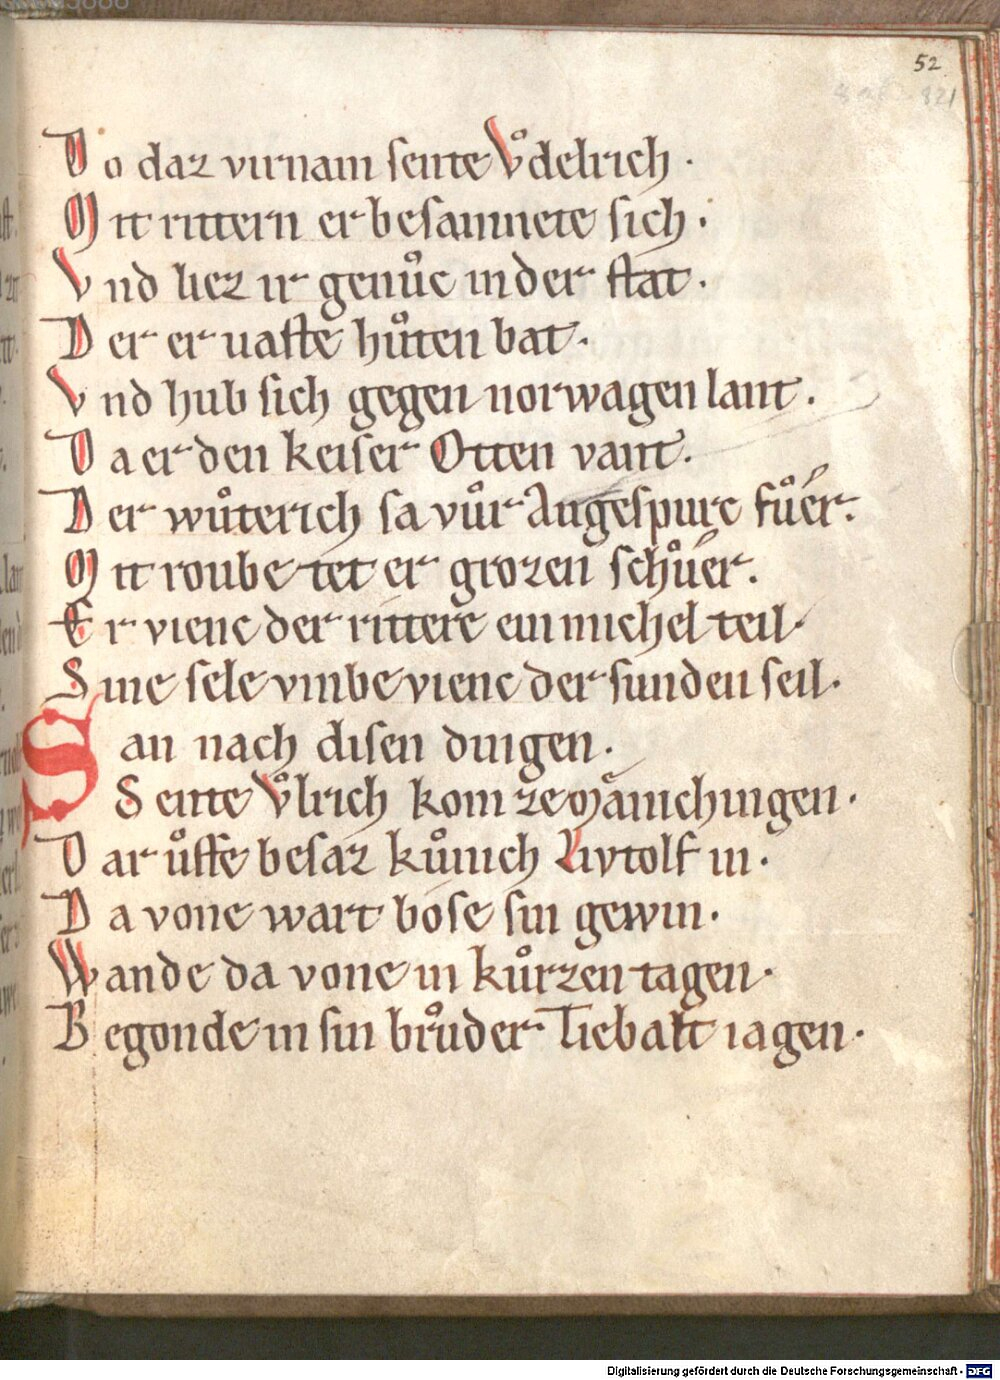 52
821
Do daz virnam sente Vͦdelrich ·
Mit rittern er besamnete sich ·
Vnd liez ir genuͦc in der stat ·
Der er uaste huͦten bat ·
Vnd hub sich gegen norwagen lant ·
Da er den keiser Otten vant ·
Der wuͦterich sa vuͦr Augespurc fuͦer ·
Mit roube tet er grozen schuͦer ·
Er vienc der rittere ein michel teil ·
Sine sele vmbevienc der sunden seil ·
San nach disen dingen ·
Sente Vͦlrich kom ze Mänichingen ·
Dar uͦffe besaz kuͦnich Livtolf in ·
Da vone wart bose sin gewin ·
Wande da vone in kuͦrzen tagen ·
Begonde in sin bruͦder Tiebalt iagen ·
Digitalisierung gefördert durch die Deutsche Forschungsgemeinschaft - DFG